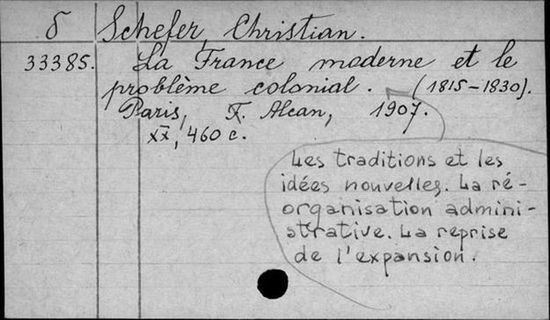 δ Schefer, Christian.
33385. La France moderne et le
problème colonial. (1815-1830).
Paris, F. Alcan, 1907.
XX, 460 c.
Les traditions et les
idées nouvelles. La ré-
organisation admini-
strative. La reprise
de l'expansion.